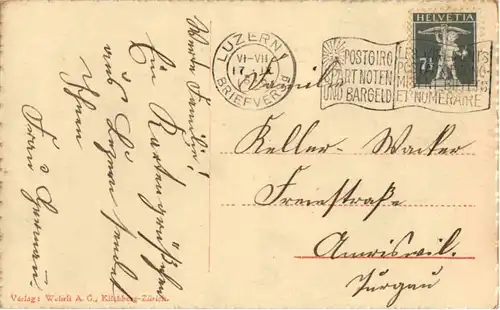 Werte Familie!
Ein Kartengrüßchen
aus Luzern sendet
Ihnen
Frau German.
LUZERN 1
VI-VII
17.
BRIEFVERS
POSTGIRO
SPART NOTEN
UND BARGELD
ET NUMERAIRE
HELVETIA
7½
Famil.
Keller-Wacker
Freiestraße
Amriswil.
Turgau
Verlag: Wehrli A. G., Kilchberg-Zürich.